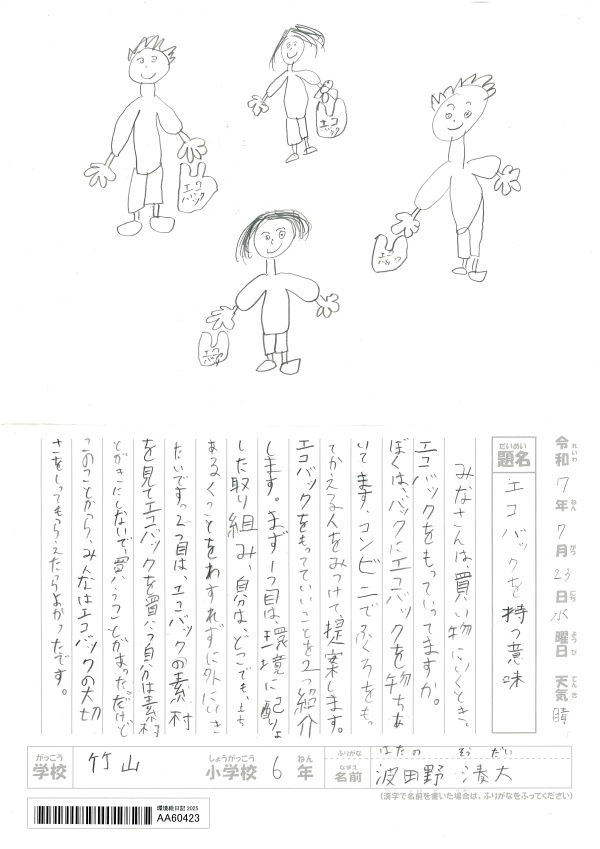 エコバック
エコバック
エコバック
エコバック
令和7年7月23日水曜日 天気 晴
れいわ ねん がつ にち ようび てんき
だいめい
題名 エコバックを持つ意味
みなさんは、買い物にいくとき、
エコバックをもっていってますか。
ぼくは、バックにエコバックを物ちある
いてます、コンビニでふくろをもっ
てかえる人をみつけて提案します。
エコバックをもっていいいことを2つ紹介
します。まず1つ目は、環境に配りょ
した取り組み、自分は、どこでも、もち
あるくことをわすれずに外にいき
たいです。2つ目は、エコバックの素材
を見てエコバックを買う自分は素材
とかきにしないで、買うことがあった。だけど
このことから、みんなはエコバックの大切
さをしってもらえたらよかったです。
がっこう しょうがっこう ねん ふりがな はたの そうだい
学校 竹山 小学校 6年 なまえ 名前 波田野 湊大
(漢字で名前を書いた場合は、ふりがなをふってください)
環境絵日記 2025
AA60423